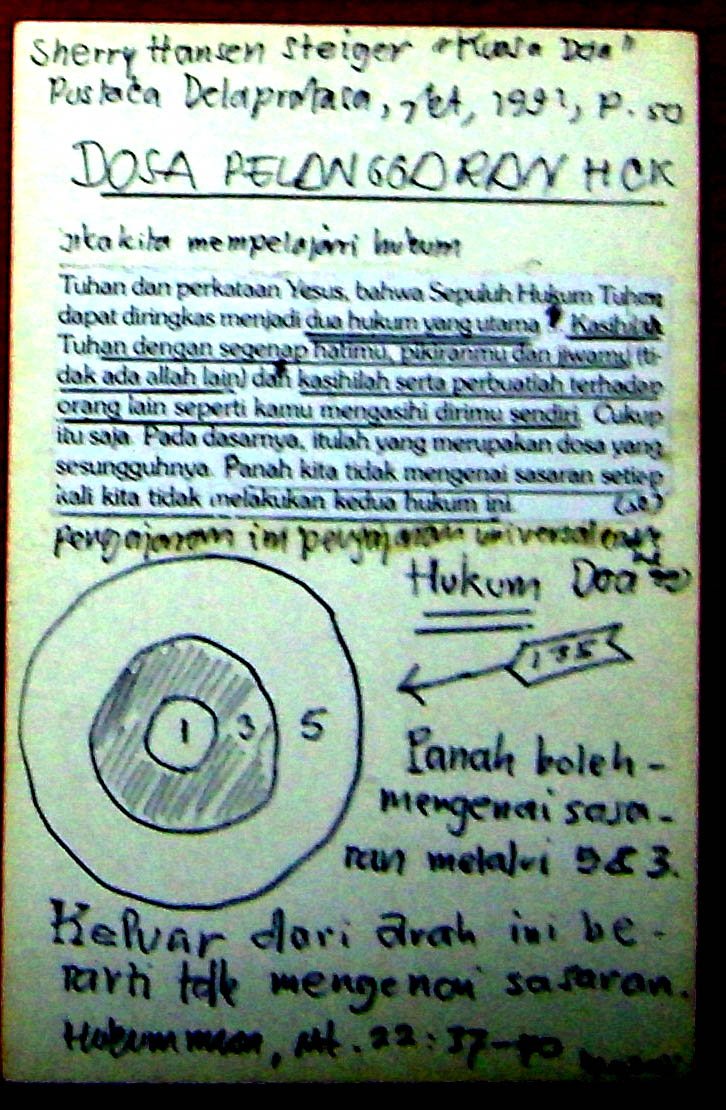 Sherry Hansen Steiger "Kuasa Doa"
Pustaka Delapratasa, Jkt, 1992, p. 50
DOSA PELANGGARAN HCK
Jika kita mempelajari hukum
Tuhan dan perkataan Yesus, bahwa Sepuluh Hukum Tuhan
dapat diringkas menjadi dua hukum yang utama Kasihilah
Tuhan dengan segenap hatimu, pikiranmu dan jiwamu (ti-
dak ada allah lain) dan kasihilah serta perbuatlah terhadap
orang lain seperti kamu mengasihi dirimu sendiri. Cukup
itu saja. Pada dasarnya, itulah yang merupakan dosa yang
sesungguhnya. Panah kita tidak mengenai sasaran setiap
kali kita tidak melakukan kedua hukum ini.
pengajaran ini pengajaran universal
Hukum Doa
135
1 3 5
Panah boleh-
mengenai sasa-
ran melalui 5 & 3.
Keluar dari arah ini be-
rarti tdk mengenai sasaran.
Mt. 22:37-40